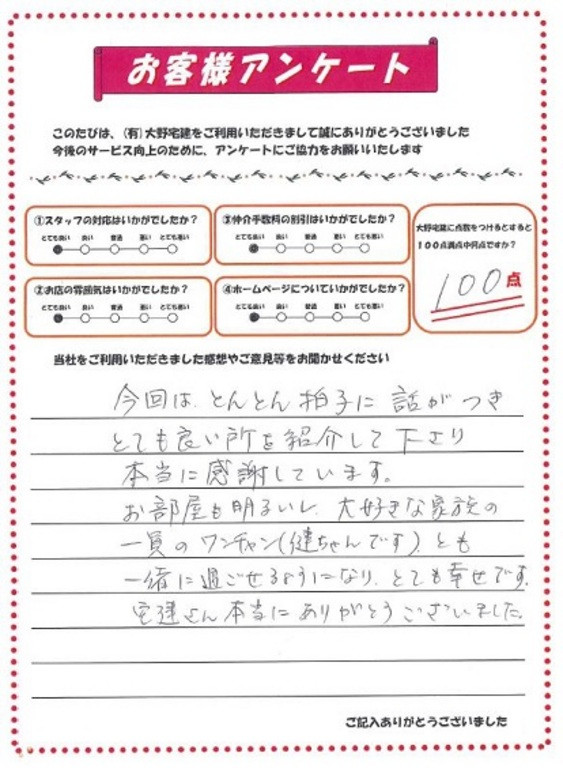 お客様アンケート
このたびは、(有)大野宅建をご利用いただきまして誠にありがとうございました
今後のサービス向上のために、アンケートにご協力をお願いいたします
①スタッフの対応はいかがでしたか?
とても良い 良い 普通 悪い とても悪い
③仲介手数料の割引はいかがでしたか?
とても良い 良い 普通 悪い とても悪い
大野宅建に点数をつけるとすると
100点満点中何点ですか?
100点
②お店の雰囲気はいかがでしたか?
とても良い 良い 普通 悪い とても悪い
④ホームページについていかがでしたか?
とても良い 良い 普通 悪い とても悪い
当社をご利用いただきました感想やご意見等をお聞かせください
今回は、とんとん拍子に話がつき
とても良い所を紹介して下さり
本当に感謝しています。
お部屋も明るいし、大好きな家族の
一員のワンチャン(健ちゃんです)とも
一緒に過ごせるようになり、とても幸せです。
宅建さん本当にありがとうございました。
ご記入ありがとうございました